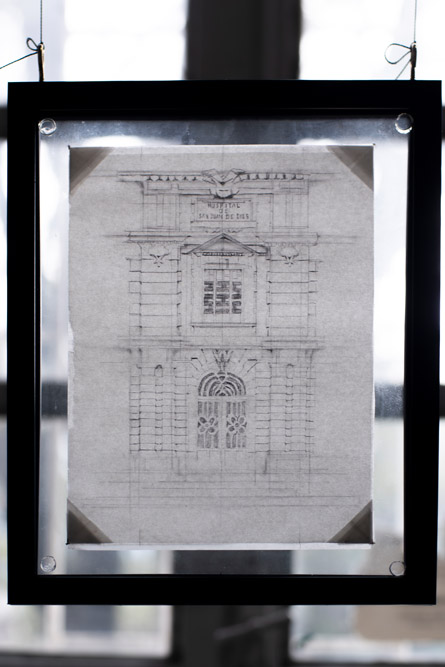 HOSPITAL
DE
SAN JUAN DE DIOS